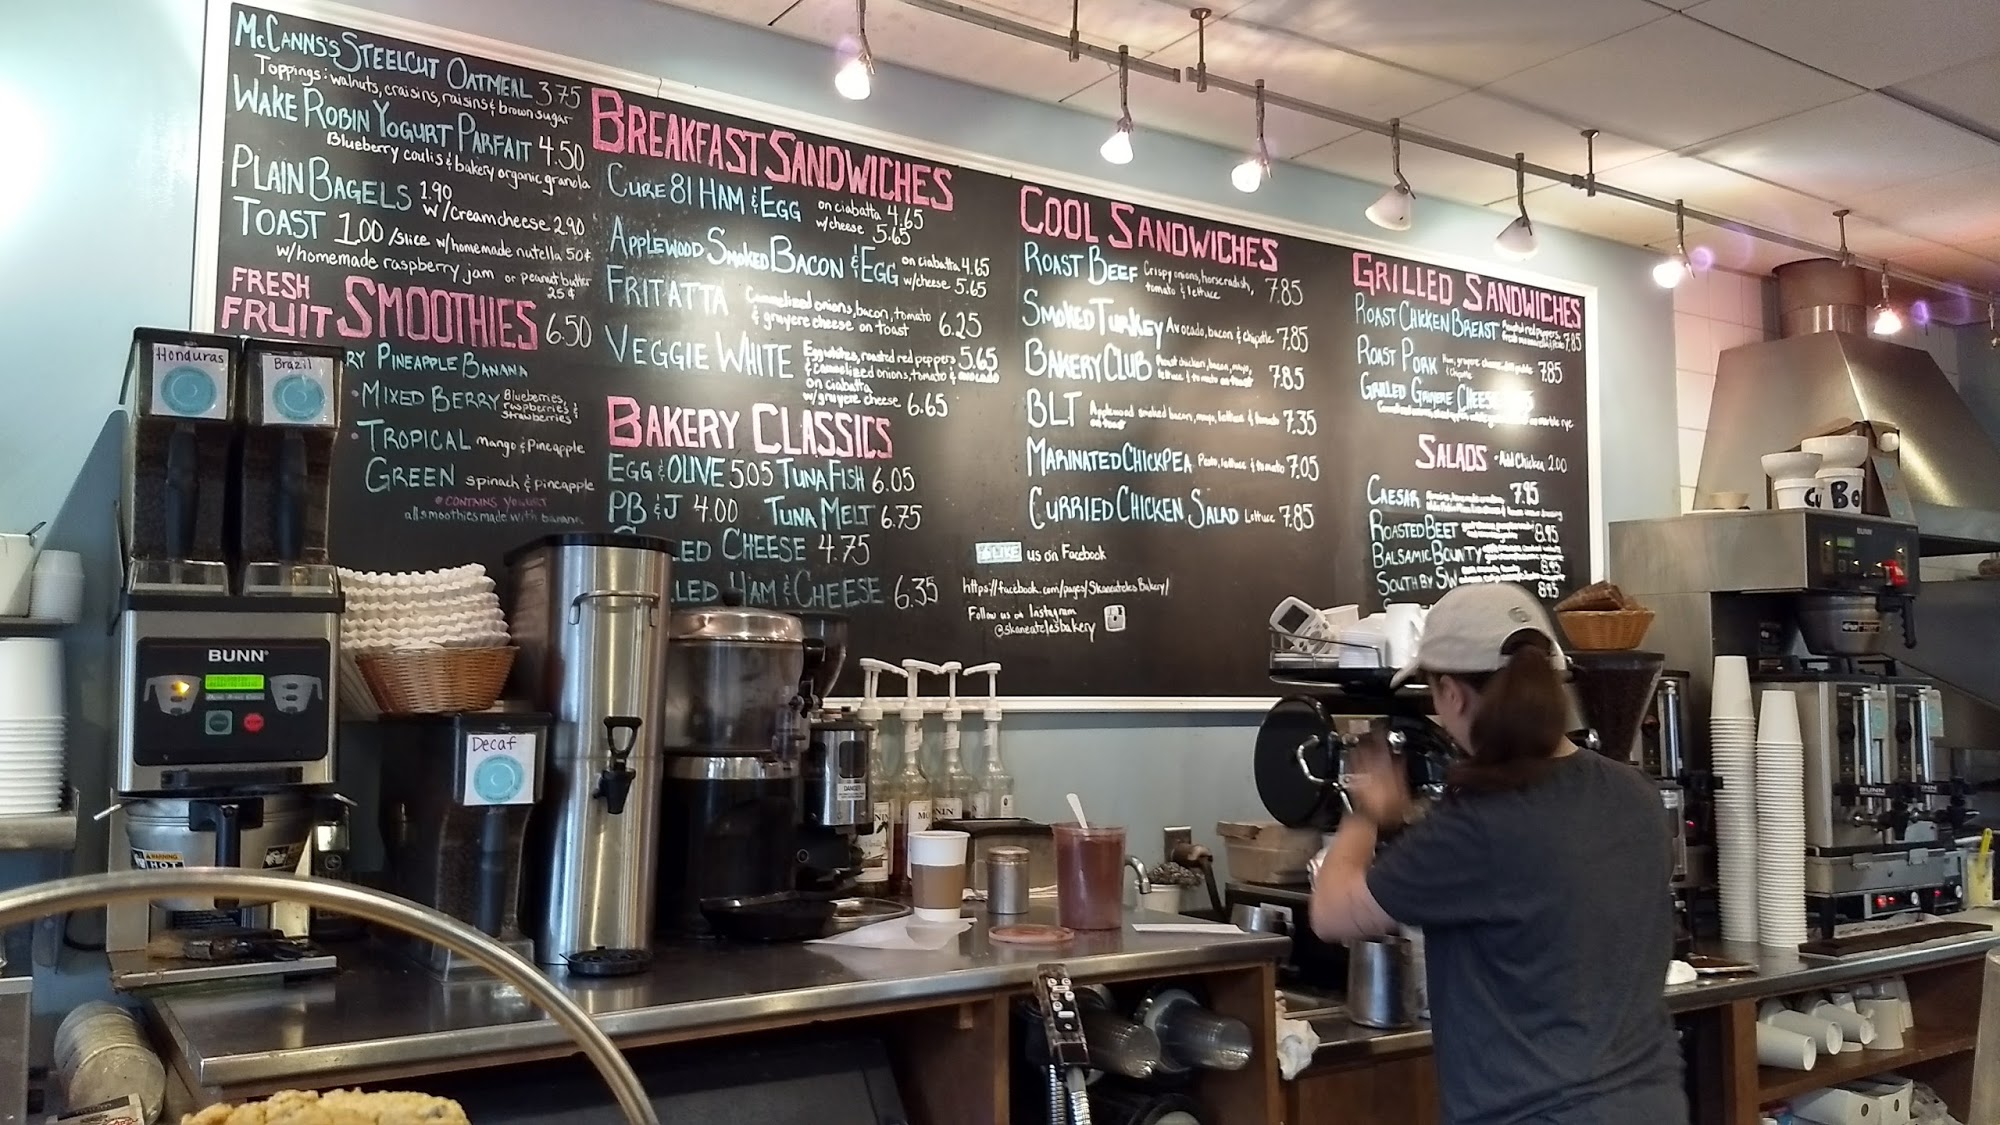 McCanns's Steelcut Oatmeal 3.75
Toppings: walnuts, craisins, raisins & brown sugar
Wake Robin Yogurt Parfait 4.50
Blueberry coulis & bakery organic granola
Plain Bagels 1.90
w/creamcheese 2.90
Toast 1.00 /slice w/homemade nutella 50¢
w/homemade raspberry jam or peanut butter
25¢
Fresh Fruit Smoothies 6.50
ry Pineapple Banana
• Mixed Berry Blueberries, raspberries & strawberries
• Tropical mango & Pineapple
Green spinach & pineapple
* contains yogurt
all smoothies made with banana
Breakfast Sandwiches
Cure 81 Ham & Egg on ciabatta 4.65
w/cheese 5.65
Applewood Smoked Bacon & Egg on ciabatta 4.65
w/cheese 5.65
Fritatta Carmelized onions, bacon, tomato
& gruyere cheese on toast 6.25
Veggie White Egg whites, roasted red peppers 5.65
& carmelized onions, tomato & avocado
on ciabatta
w/gruyere cheese 6.65
Bakery Classics
Egg & Olive 5.05 Tuna Fish 6.05
PB & J 4.00 Tuna Melt 6.75
led Cheese 4.75
lled Ham & Cheese 6.35
Cool Sandwiches
Roast Beef Crispy onions, horseradish,
tomato & lettuce 7.85
Smoked Turkey Avocado, bacon & chipotle 7.85
Bakery Club Roast chicken, bacon, mayo,
lettuce & tomato on toast 7.85
BLT Applewood smoked bacon, mayo, lettuce & tomato
on toast 7.35
Marinated Chickpea Pesto, lettuce & tomato 7.05
Curried Chicken Salad Lettuce 7.85
LIKE us on Facebook
https://facebook.com/pages/SkaneatelesBakery/
Follow us on Instagram
@skaneatelesbakery
Grilled Sandwiches
Roast Chicken Breast Roasted red peppers,
7.85
Roast Pork 7.85
Grilled Gruyere Cheese
Salads • Add Chicken 2.00
Caesar 7.95
Roasted Beet 8.95
Balsamic Bounty 8.95
South by SW 8.95
Honduras
Brazil
BUNN
Decaf
WARNING
HOT
DANGER
MONIN
BUNN
BUNN
BUNN